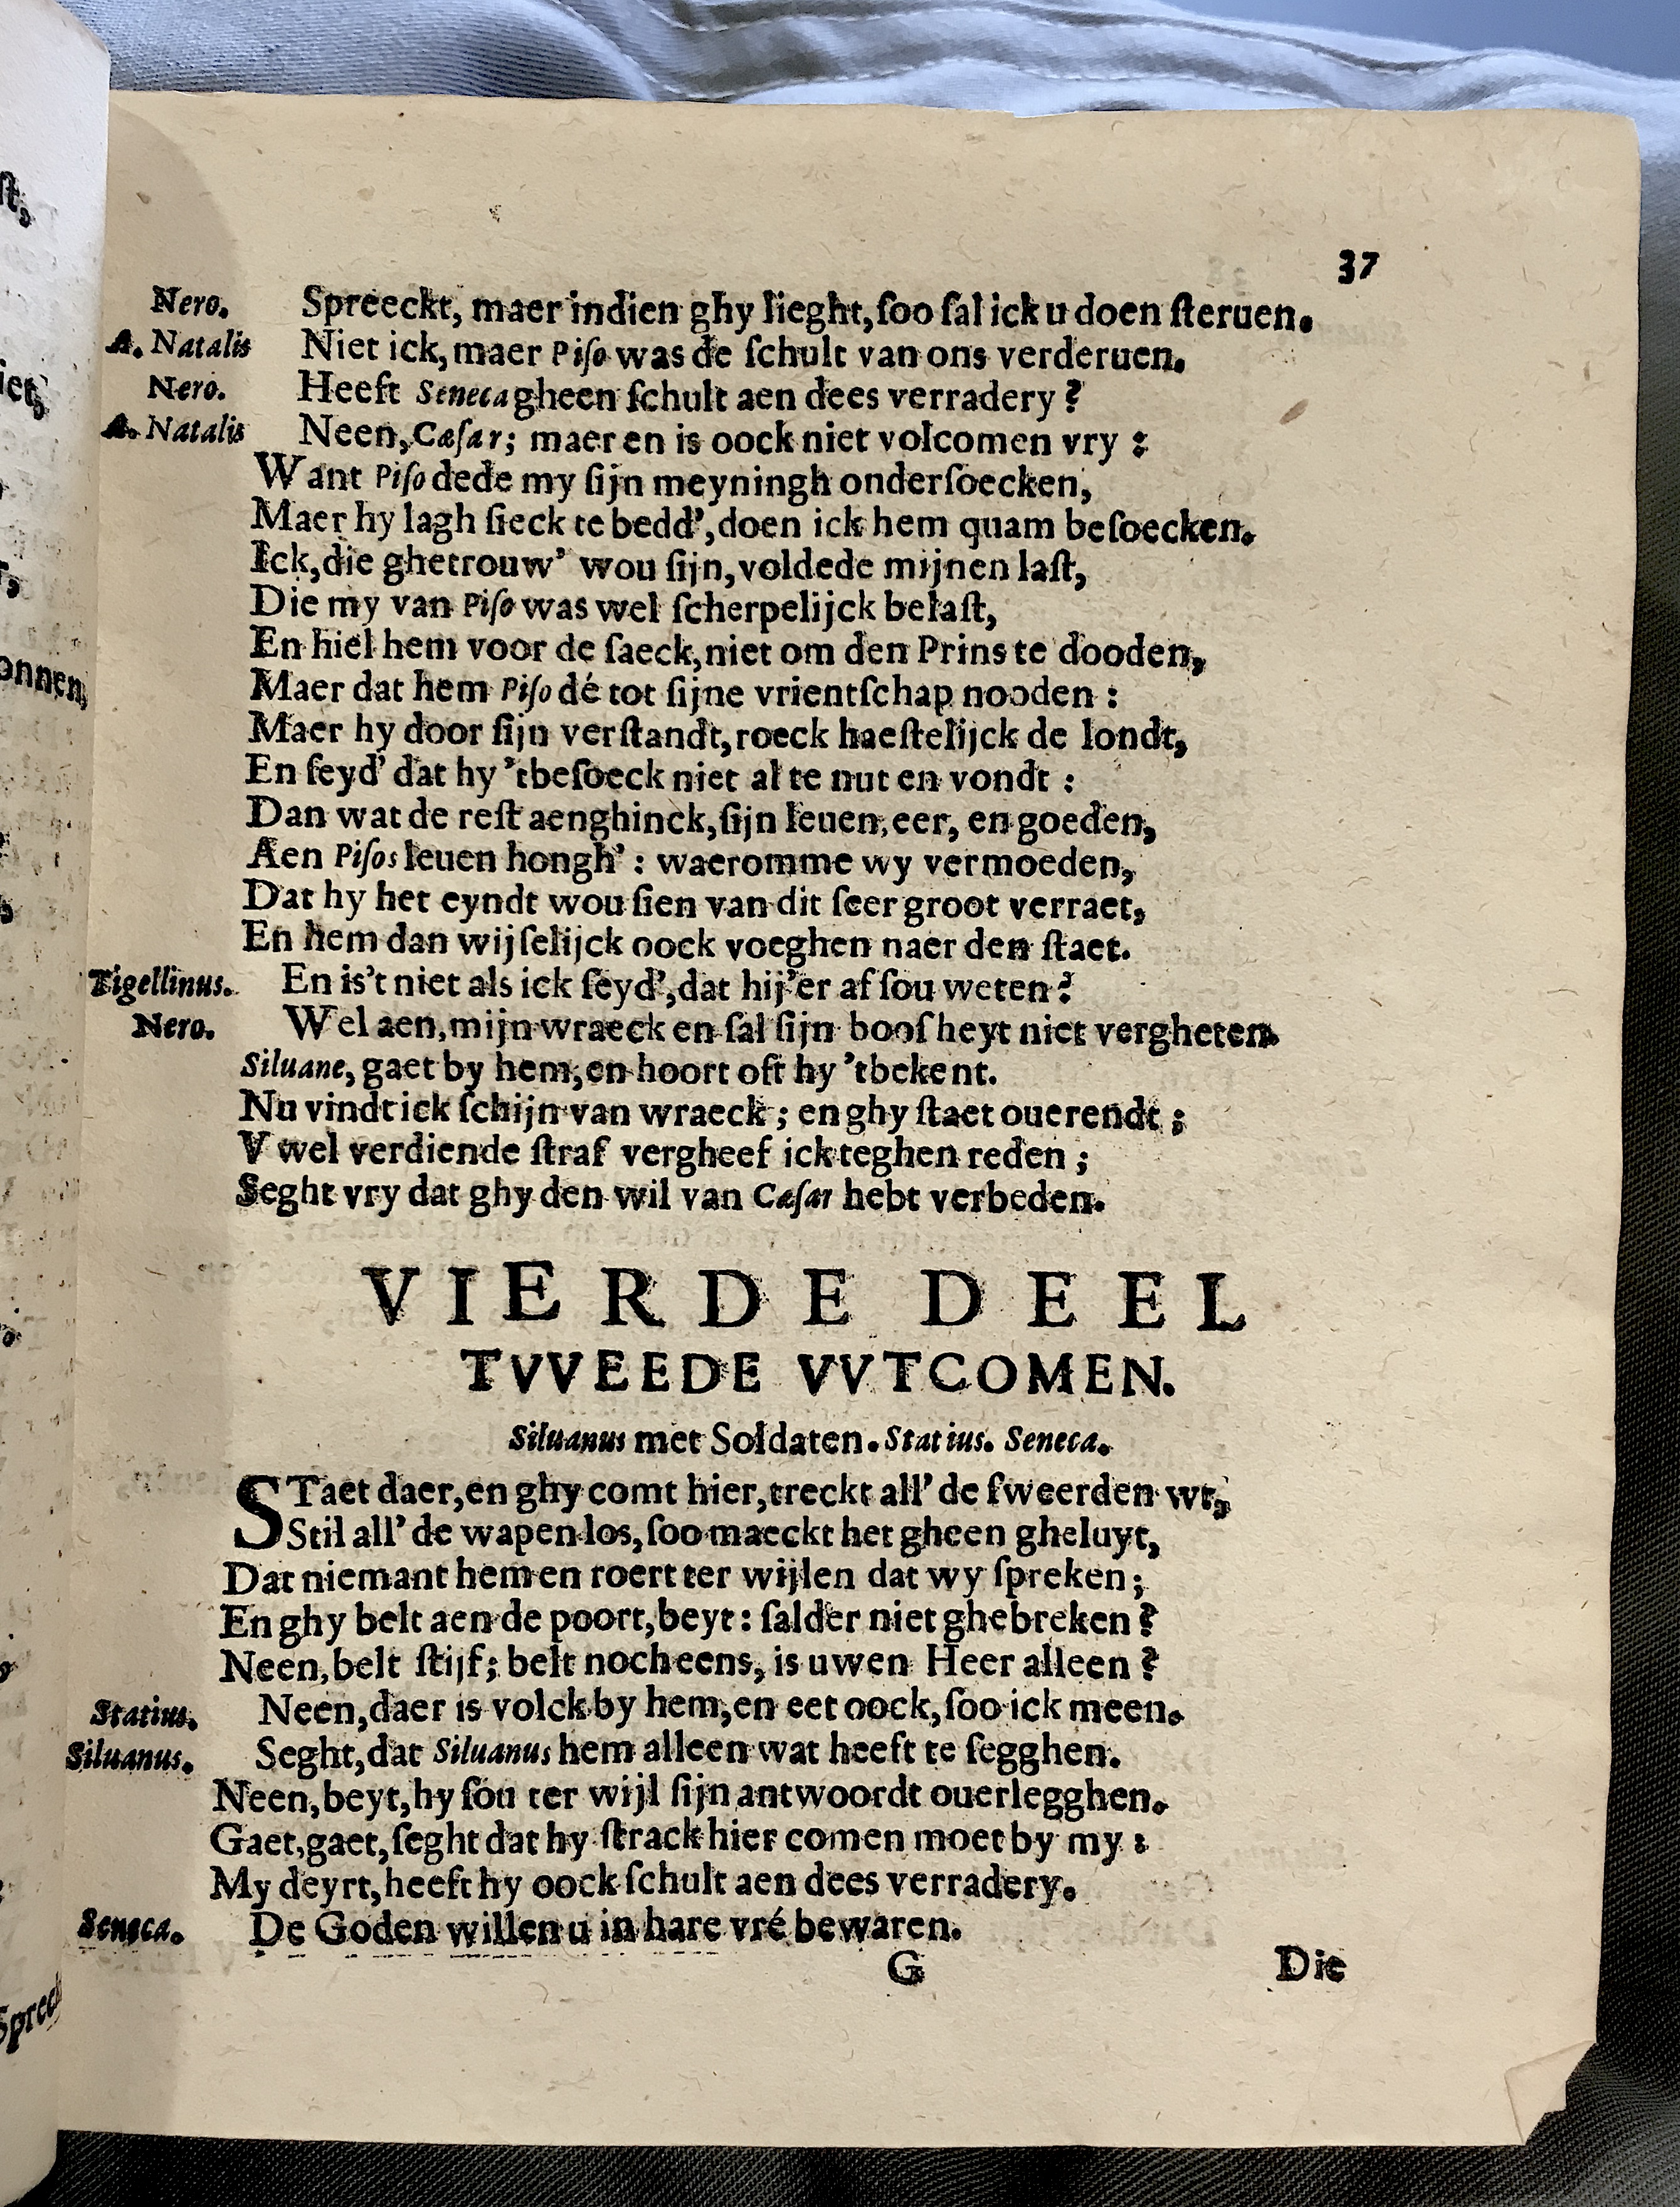 37
Nero. Spreeckt, maer indien ghy lieght, ſoo ſal ick u doen ſteruen.
A. Natalis Niet ick, maer Piſo was de ſchult van ons verderuen.
Nero. Heeft Seneca gheen ſchult aen dees verradery?
A. Natalis Neen, Cæſar; maer en is oock niet volcomen vry:
Want Piſo dede my ſijn meyningh onderſoecken,
Maer hy lagh ſieck te bedd', doen ick hem quam beſoecken.
Ick, die ghetrouw' wou ſijn, voldede mijnen laſt,
Die my van Piſo was wel ſcherpelijck belaſt,
En hiel hem voor de ſaeck, niet om den Prins te dooden,
Maer dat hem Piſo dé tot ſijne vrientſchap nooden:
Maer hy door ſijn verſtandt, roeck haeſtelijck de londt,
En ſeyd' dat hy 'tbeſoeck niet al te nut en vondt:
Dan wat de reſt aenghinck, ſijn leuen, eer, en goeden,
Aen Piſos leuen hongh': waeromme wy vermoeden,
Dat hy het eyndt wou ſien van dit ſeer groot verraet,
En hem dan wijſelijck oock voeghen naer den ſtaet.
Tigellinus. En is't niet als ick ſeyd', dat hij'er af ſou weten?
Nero. Wel aen, mijn wraeck en ſal ſijn boofheyt niet vergheten.
Siluane, gaet by hem, en hoort oft hy 'tbekent.
Nu vindt ick ſchijn van wraeck; en ghy ſtaet ouerendt;
V wel verdiende ſtraf vergheef ick teghen reden;
Seght vry dat ghy den wil van Cæſar hebt verbeden.
VIERDE DEEL
TVVEEDE VVTCOMEN.
Siluanus met Soldaten. Statius. Seneca.
STaet daer, en ghy comt hier, treckt all' de ſweerden wt,
Stil all' de wapen los, ſoo maeckt het gheen gheluyt,
Dat niemant hem en roert ter wijlen dat wy ſpreken;
En ghy belt aen de poort, beyt: ſalder niet ghebreken?
Neen, belt ſtijf; belt noch eens, is uwen Heer alleen?
Statius. Neen, daer is volck by hem, en eet oock, ſoo ick meen.
Siluanus. Seght, dat Siluanus hem alleen wat heeft te ſegghen.
Neen, beyt, hy ſou ter wijl ſijn antwoordt ouerlegghen.
Gaet, gaet, ſeght dat hy ſtrack hier comen moet by my:
My deyrt, heeft hy oock ſchult aen dees verradery.
Seneca. De Goden willen u in hare vré bewaren.
G Die